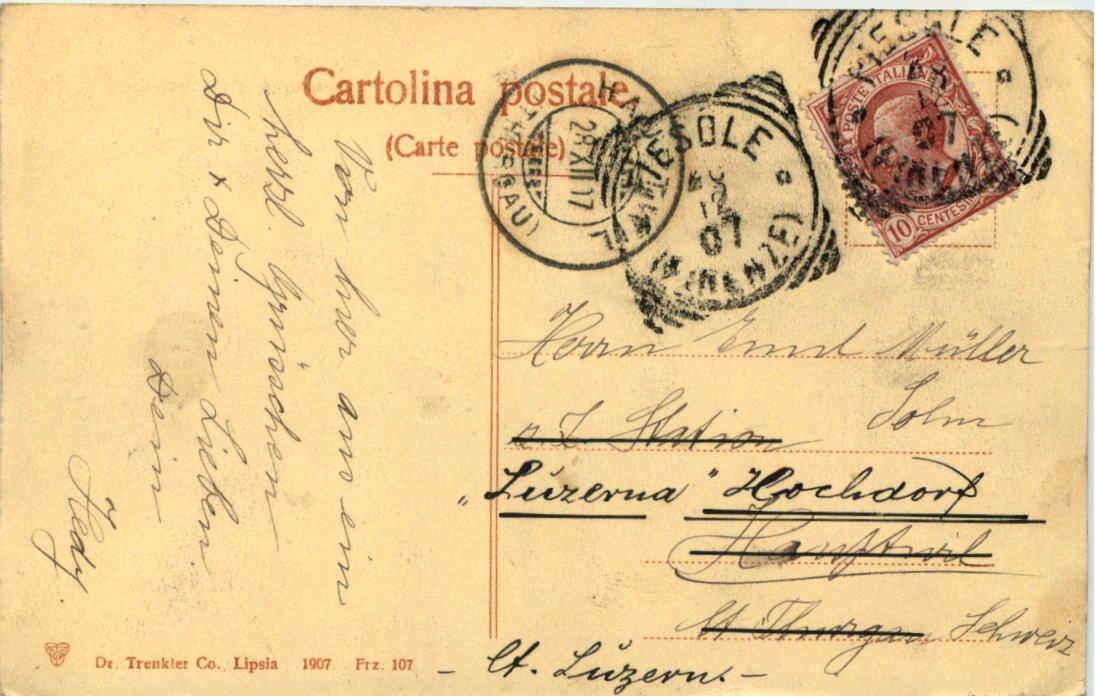 Cartolina postale
(Carte postale)
POSTE ITALIANE
10 CENTESIMI
FIESOLE
12
07
(FIRENZE)
FIESOLE
12
07
(FIRENZE)
HAUPTWIL
28.XII.07
(THURGAU)
Von hier aus ein
herzl. Grüsschen
Dir & Deinem Lieben
Dein
Hedy.
Herrn Emil Müller
Sohn
z. Z. Station
„Luzerna" Hochdorf
Hauptwil
Ct Thurgau Schweiz
- Ct. Luzern. -
Dr. Trenkler Co., Lipsia 1907. Frz. 107